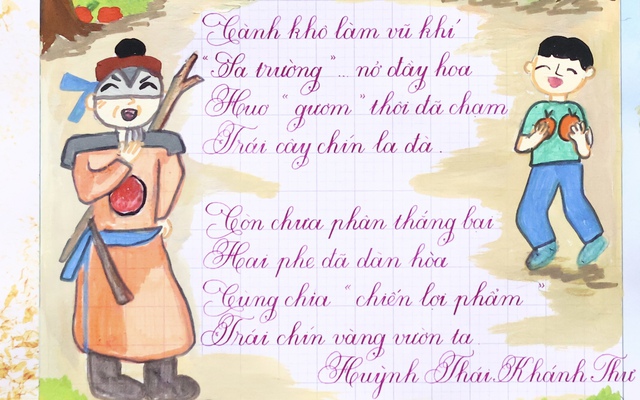 Cành khô làm vũ khí
"Sa trường"... nở đầy hoa
Huơ "gươm" thôi đã chạm
Trái cây chín la đà.
Còn chưa phân thắng bại
Hai phe đã dàn hòa
Cùng chia "chiến lợi phẩm"
Trái chín vàng vườn ta.
Huỳnh Thái Khánh Thư